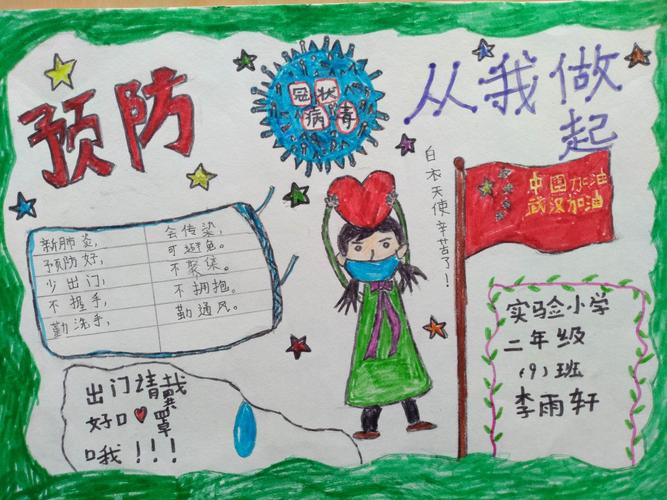 预防
冠状
病毒
从我做
起
白衣天使辛苦了！
中国加油
武汉加油
新肺炎， 会传染，
预防好， 可避免。
少出门， 不聚集。
不握手， 不拥抱。
勤洗手， 勤通风。
出门请戴
好口罩
哦！！！
实验小学
二年级
(9)班
李雨轩